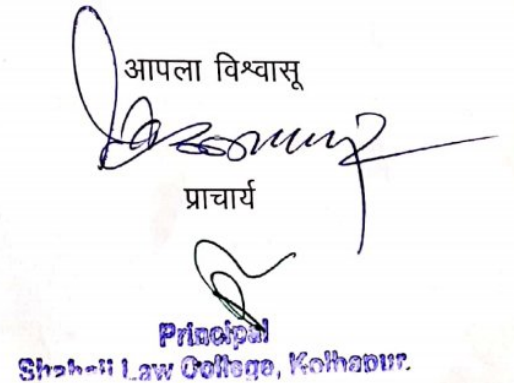 आपला विश्वासू
प्राचार्य
Principal
Law College, Kolhapur.